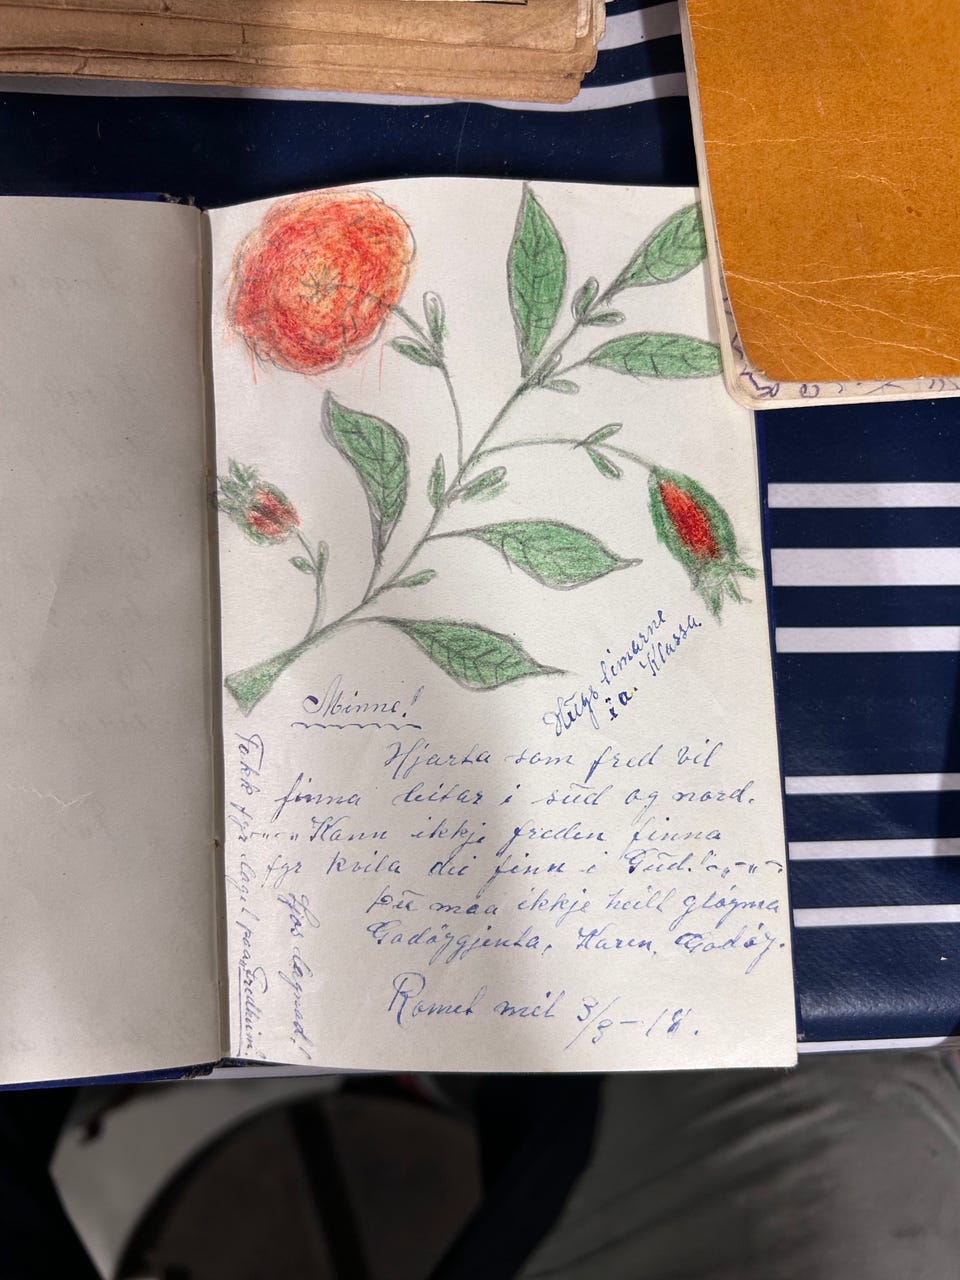 Minne!
Hugs timarne
i a. Klassa
Hjarta som fred vil
finna leitar i sud og nord.
Kann ikkje freden finna
fyr kvila dei finn i Gud!
Du maa ikkje heilt gløyma
Godøygjenta, Karen Godøy.
Romet mit 3/3-18.
Takk fyr laget paa Fredheim!
Hos Lagnad!